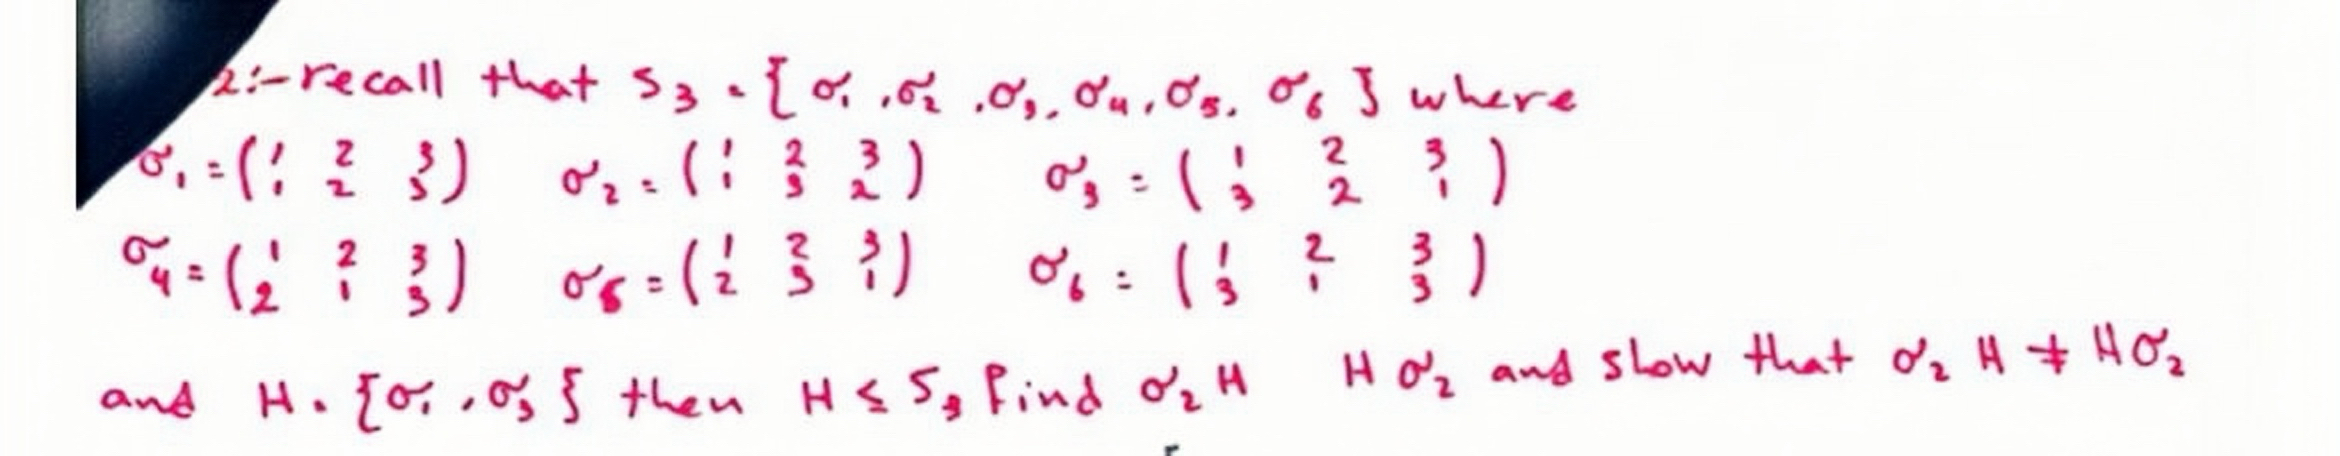 2:- recall that S3 = { σ1 , σ2 , σ3 , σ4 , σ5 , σ6 } where
σ1 = ( 1 2 3 / 1 2 3 ) σ2 = ( 1 2 3 / 1 3 2 ) σ3 = ( 1 2 3 / 3 2 1 )
σ4 = ( 1 2 3 / 2 1 3 ) σ5 = ( 1 2 3 / 2 3 1 ) σ6 = ( 1 2 3 / 3 1 3 )
and H = { σ1 , σ3 } then H ≤ S3 find σ2 H H σ2 and show that σ2 H ≠ H σ2